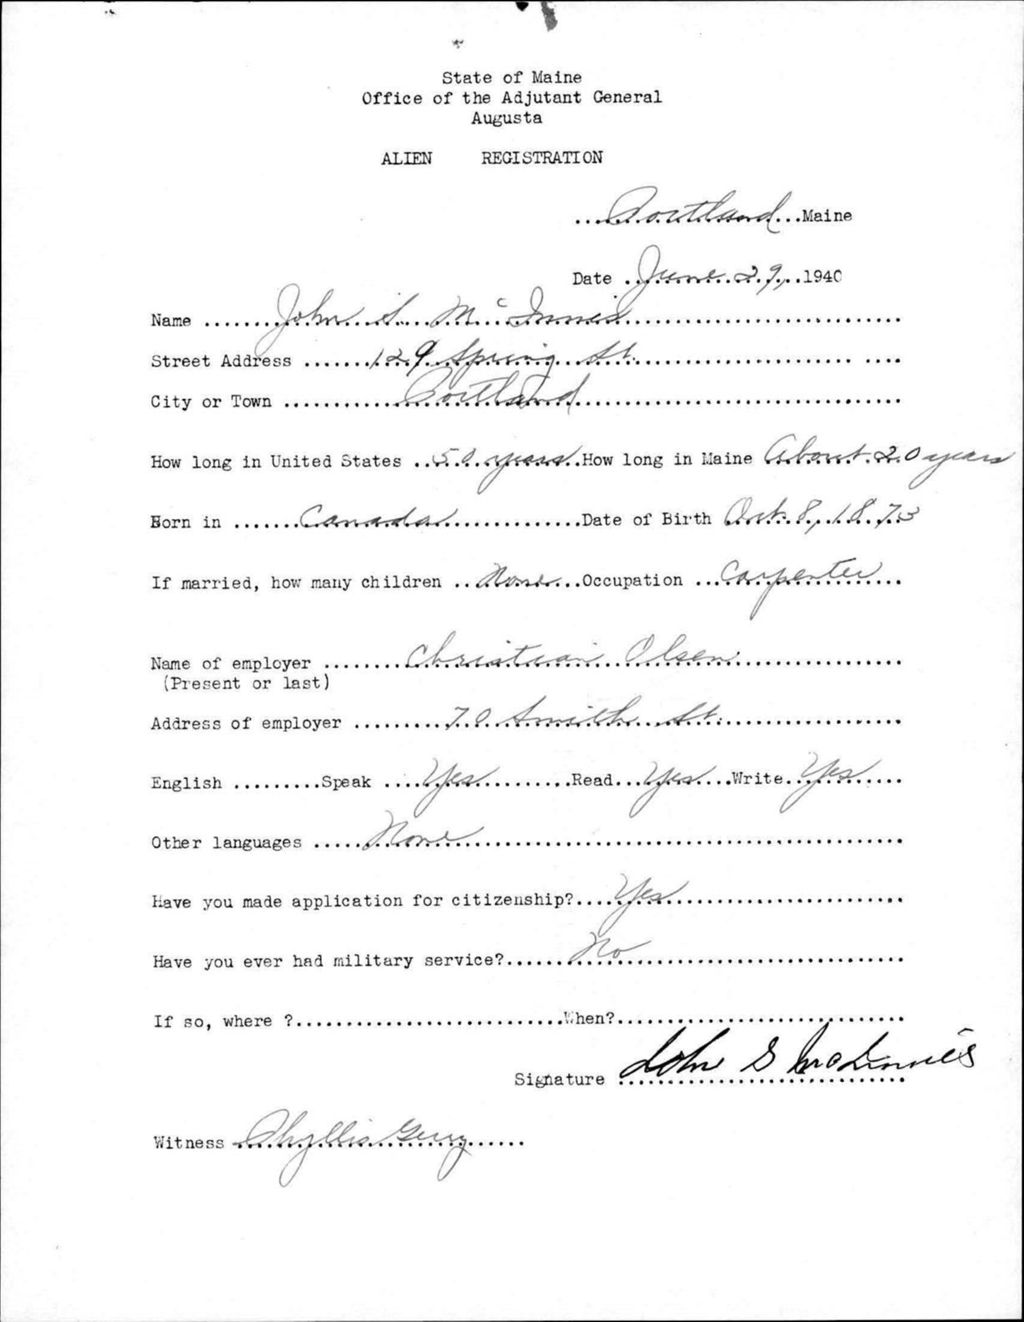 State of Maine
Office of the Adjutant General
Augusta
ALIEN REGISTRATION
...Portland...Maine
Date ..June 29,..1940
Name ........John S. McInnis............................
Street Address .......129 Spring St......................
City or Town ............Portland................................
How long in United States ..50 years..How long in Maine About 20 years
Born in .......Canada..............Date of Birth Oct. 8, 1873
If married, how many children ..None...Occupation ...Carpenter...
Name of employer ........Christian Olsen................
(Present or last)
Address of employer .........70 Smith St..................
English .........Speak ....Yes.........Read...Yes....Write..Yes....
Other languages .....None..........................................
Have you made application for citizenship?....Yes.......................
Have you ever had military service?......No............................
If so, where ?...........................When?.............................
Signature John S McInnis
Witness Phyllis Gerry......